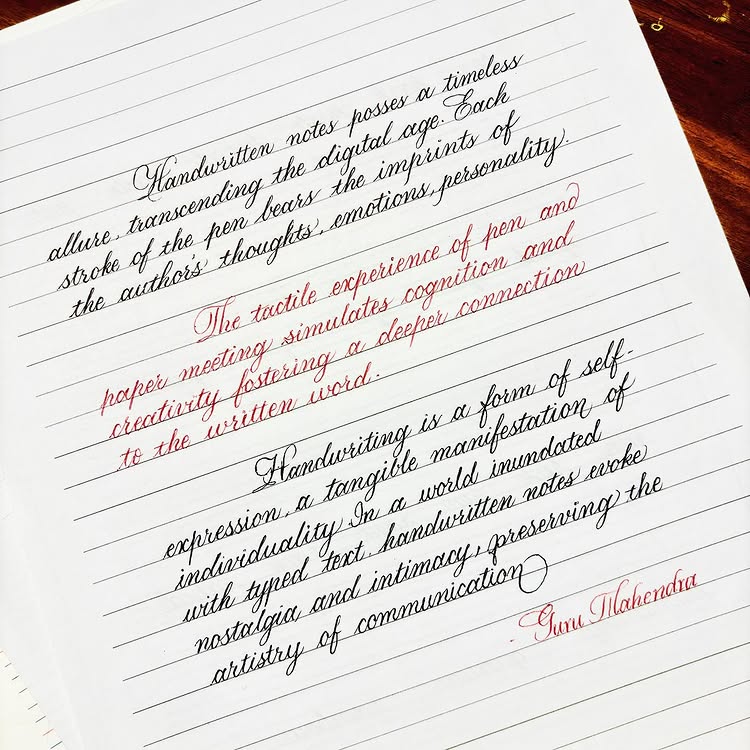 Handwritten notes posses a timeless
allure, transcending the digital age. Each
stroke of the pen bears the imprints of
the author's thoughts, emotions, personality.
The tactile experience of pen and
paper meeting simulates cognition and
creativity fostering a deeper connection
to the written word.
Handwriting is a form of self-
expression, a tangible manifestation of
individuality. In a world inundated
with typed text, handwritten notes evoke
nostalgia and intimacy, preserving the
artistry of communication
- Guru Mahendra